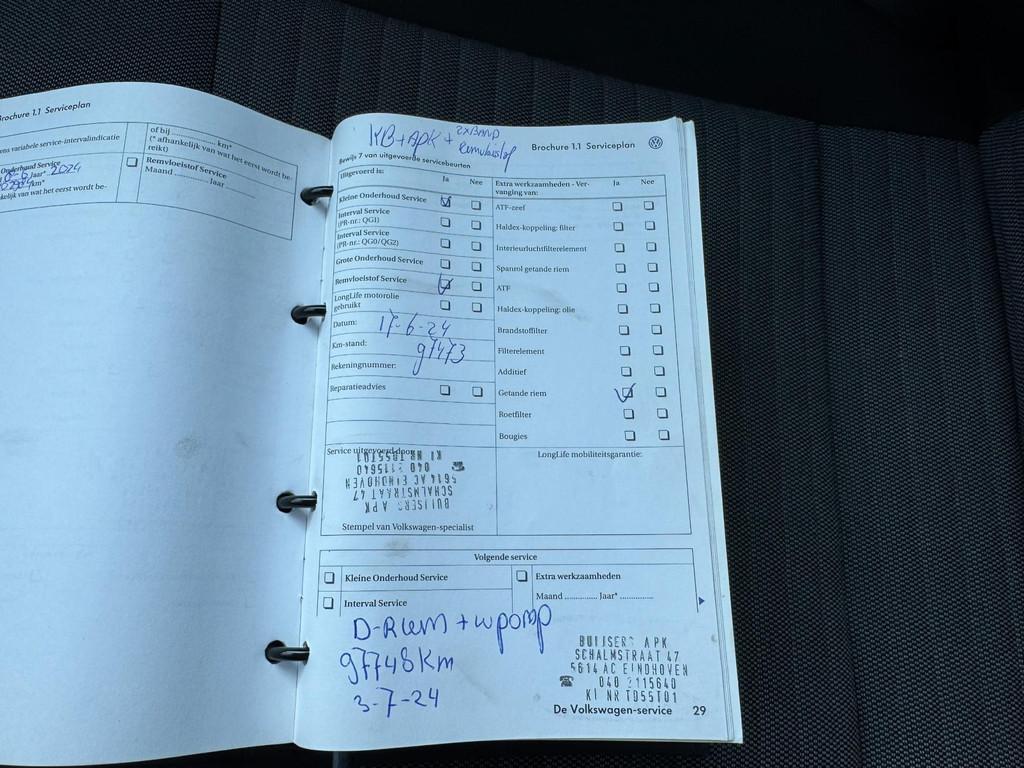 Brochure 1.1 Serviceplan
ens variabele service-intervalindicatie
Onderhoud Service
Jaar* 2024
km*
kelijk van wat het eerst wordt be-
of bij .................... km*
(* afhankelijk van wat het eerst wordt be-
reikt)
Remvloeistof Service
Maand ............ Jaar ............
KB+APK +
Remvloeistof
Brochure 1.1 Serviceplan
Bewijs 7 van uitgevoerde servicebeurten
Uitgevoerd is:
Ja Nee
Kleine Onderhoud Service
Interval Service
(PR-nr.: QG1)
Interval Service
(PR-nr.: QG0/QG2)
Grote Onderhoud Service
Remvloeistof Service
LongLife motorolie
gebruikt
Datum: 17-6-24
Km-stand: 97473
Rekeningnummer:
Reparatieadvies
Extra werkzaamheden - Ver-
vanging van:
Ja Nee
ATF-zeef
Haldex-koppeling: filter
Interieurluchtfilterelement
Spanrol getande riem
ATF
Haldex-koppeling: olie
Brandstoffilter
Filterelement
Additief
Getande riem
Roetfilter
Bougies
Service uitgevoerd door:
BUIJSERS APK
SCHALMSTRAAT 47
5614 AC EINDHOVEN
040 2115640
KI NR TD55T01
Stempel van Volkswagen-specialist
LongLife mobiliteitsgarantie:
Volgende service
Kleine Onderhoud Service
Interval Service
Extra werkzaamheden
Maand ............ Jaar* ............
D-Riem + wpomp
97748 Km
3-7-24
BUIJSERS APK
SCHALMSTRAAT 47
5614 AC EINDHOVEN
040 2115640
KI NR TD55T01
De Volkswagen-service 29